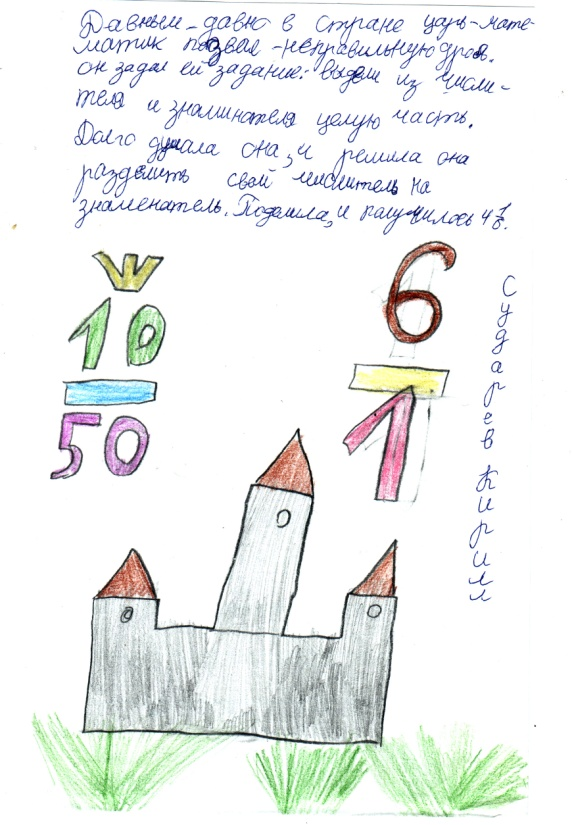 Давным-давно в стране царь-мате-
матик позвал-неправильную дробь.
он задал ей задание: выдели из числи-
теля и знаминателя целую часть.
Долго думала она, и решила она
разделить свой числитель на
знаменатель. Поделила, и получилось 4
10
50
6
1
Сударев Кирилл